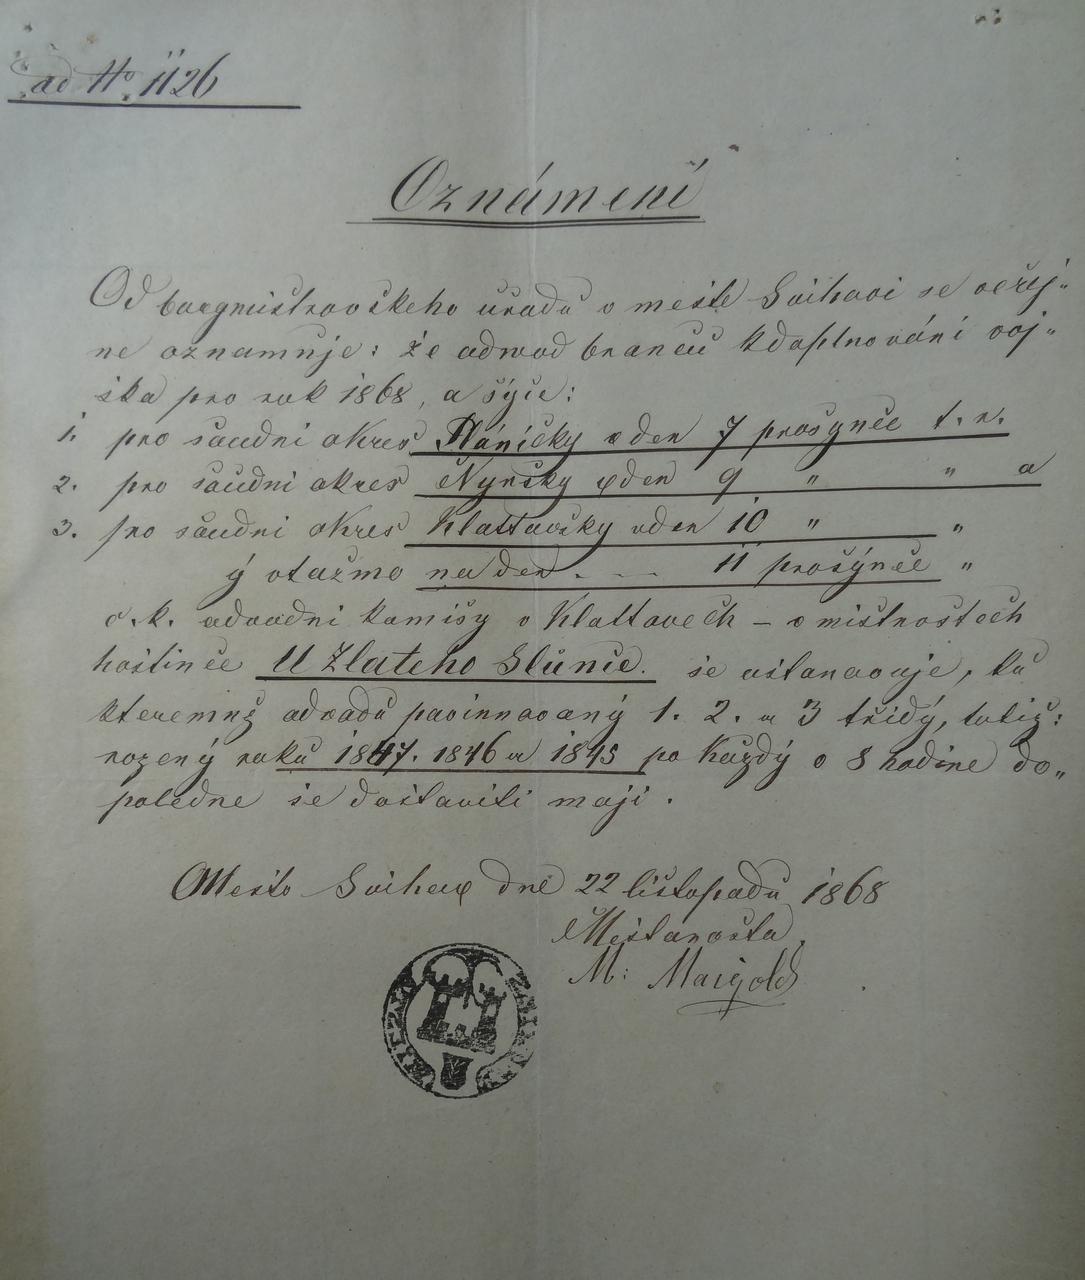 ad No. 1126
Oznámení
Od burgmistrovskeho uřadu v mestě Svihovi se veřej„
ne oznamuje: že odvod brancu k doplnování voj„
ska pro rok 1868, a sýce:
1. pro saudni okres Plánicky v den 7 prosynce t. r.
2. pro saudni okres Nyrsky v den 9 „ „ a
3. pro saudni okres Klattovsky v den 10 „ „
ý otažmo na den . _ __ 11 prosýnce „
c. k. odvodni komisy v Klattovech – v mistnostech
hostince U Zlateho Slunce. se ustanovuje, ku
kteremuž odvodu povinnovaný 1. 2. a 3 třidý, totiž:
rozený roku 1847. 1846 a 1845 po každý v 8 hodine do„
poledne se dostaviti maji.
Mesto Svihov dne 22 listopadu 1868
Mestanosta
M: Maigold